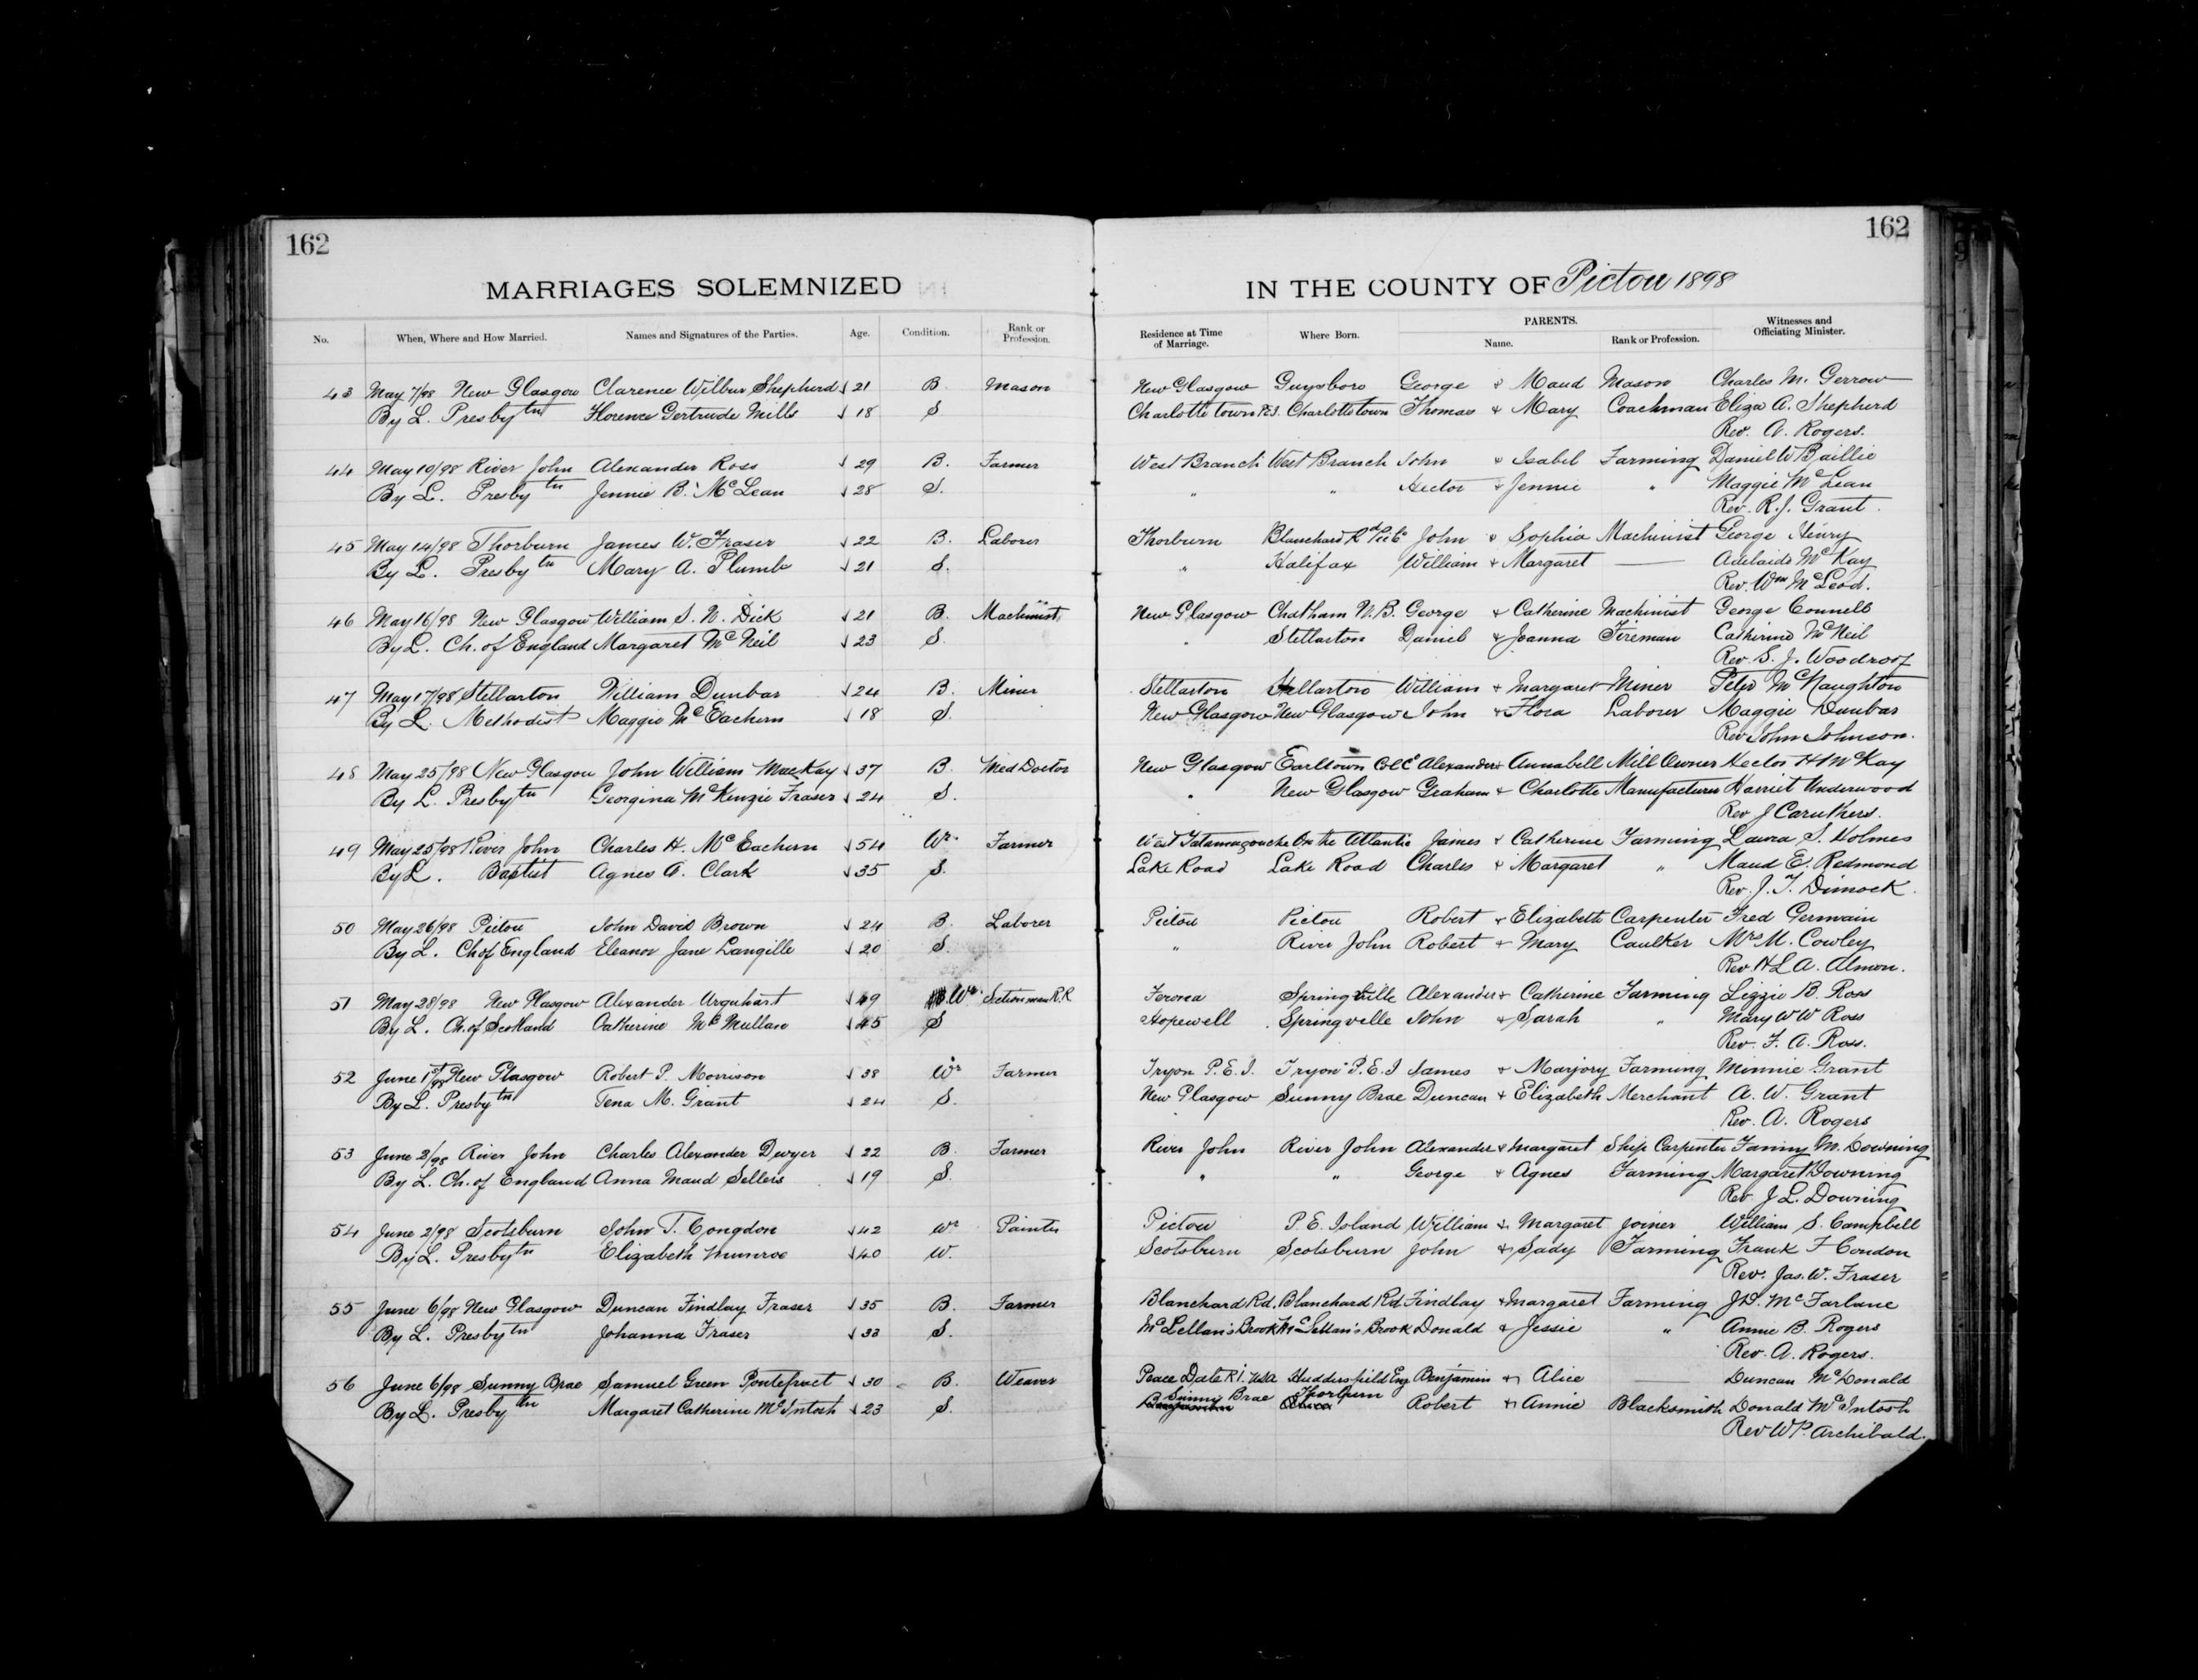 162
162
MARRIAGES SOLEMNIZED IN THE COUNTY OF Pictou 1898
No. When, Where and How Married. Names and Signatures of the Parties. Age. Condition. Rank or Profession. Residence at Time of Marriage. Where Born. PARENTS. Name. Rank or Profession. Witnesses and Officiating Minister.
43 May 7/98 New Glasgow Clarence Wilbur Shepherd 21 B. Mason New Glasgow Guysboro George & Maud Mason Charles M. Gerrow
By L. Presbytn Florence Gertrude Mills 18 S Charlottetown P.E.I. Charlottetown Thomas & Mary Coachman Eliza A. Shepherd
Rev. A. Rogers.
44 May 10/98 River John Alexander Ross 29 B. Farmer West Branch West Branch John & Isabel Farming Daniel W Baillie
By L. Presbytn Jennie B. McLean 28 S. " " Hector & Jennie " Maggie McLean
Rev. R.J. Grant.
45 May 14/98 Thorburn James W. Fraser 22 B. Laborer Thorburn Blanchard Rd Pic Co John & Sophia Machinist George Henry
By L. Presbytn Mary A. Plumb 21 S. " Halifax William & Margaret — Adelaide McKay
Rev. Wm McLeod.
46 May 16/98 New Glasgow William S. N. Dick 21 B. Machinist New Glasgow Chatham N.B. George & Catherine Machinist George Connell
By L. Ch. of England Margaret McNeil 23 S. " Stellarton Daniel & Joanna Fireman Catherine McNeil
Rev. S. J. Woodroof
47 May 17/98 Stellarton William Dunbar 24 B. Miner Stellarton Stellarton William & Margaret Miner Peter McNaughton
By L. Methodist Maggie McEachern 18 S. New Glasgow New Glasgow John & Flora Laborer Maggie Dunbar
Rev John Johnson.
48 May 25/98 New Glasgow John William MacKay 37 B. Med Doctor New Glasgow Earltown Col Co Alexander & Annabell Mill Owner Hector H McKay
By L. Presbytn Georgina McKenzie Fraser 24 S. " New Glasgow Graham & Charlotte Manufacturer Harriet Underwood
Rev J Caruthers.
49 May 25/98 River John Charles H. McEachern 54 Wr. Farmer West Tatamagouche On the Atlantic James & Catherine Farming Laura S. Holmes
By L. Baptist Agnes A. Clark 35 S. Lake Road Lake Road Charles & Margaret " Maud E. Redmond
Rev. J. T. Dimock.
50 May 26/98 Pictou John David Brown 24 B. Laborer Pictou Pictou Robert & Elizabeth Carpenter Fred Germain
By L. Ch of England Eleanor Jane Langille 20 S. " River John Robert & Mary Caulker Mrs M. Cowley
Rev. H L A. Almon.
51 May 28/98 New Glasgow Alexander Urquhart 49 Wr. Sectionman R.R. Ferona Springville Alexander & Catherine Farming Lizzie B. Ross
By L. Ch. of Scotland Catherine McMullan 45 S Hopewell Springville John & Sarah " Mary W W Ross
Rev. F. A. Ross.
52 June 1st/98 New Glasgow Robert P. Morrison 38 Wr Farmer Tryon P.E.I. Tryon P.E.I James & Marjory Farming Minnie Grant
By L. Presbytn Tena M. Grant 24 S. New Glasgow Sunny Brae Duncan & Elizabeth Merchant A. W. Grant
Rev. A. Rogers
53 June 2/98 River John Charles Alexander Dwyer 22 B. Farmer River John River John Alexander & Margaret Ship Carpenter Fanny M. Downing
By L. Ch. of England Anna Maud Sellers 19 S. " " George & Agnes Farming Margaret Downing
Rev. J L. Downing
54 June 2/98 Scotsburn John T. Congdon 42 Wr Painter Pictou P. E. Island William & Margaret Joiner William S. Campbell
By L. Presbytn Elizabeth Munroe 40 W. Scotsburn Scotsburn John & Sady Farming Frank F Condon
Rev. Jas. W. Fraser
55 June 6/98 New Glasgow Duncan Findlay Fraser 35 B. Farmer Blanchard Rd. Blanchard Rd Findlay & Margaret Farming J.D. McFarlane
By L. Presbytn Johanna Fraser 33 S. McLellan's Brook McLellan's Brook Donald & Jessie " Annie B. Rogers
Rev. A. Rogers.
56 June 6/98 Sunny Brae Samuel Green Pontefract 30 B. Weaver Peace Dale R.I. USA Huddersfield Eng Benjamin & Alice — Duncan McDonald
By L. Presbytn Margaret Catherine McIntosh 23 S. Sunny Brae Thorburn Robert & Annie Blacksmith Donald McIntosh
Rev W P. Archibald.